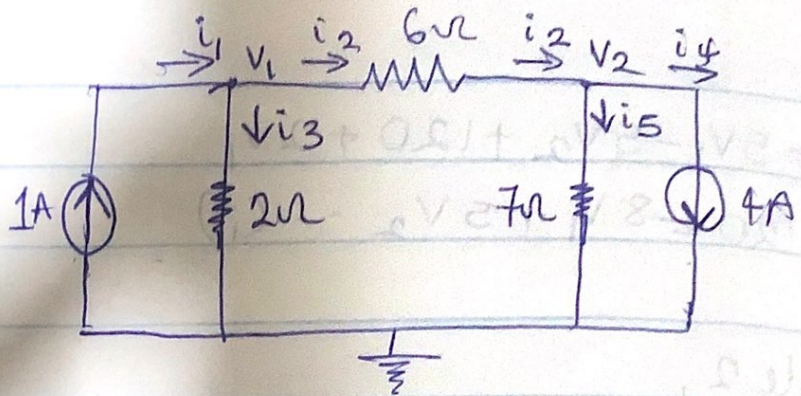 i1 V1 i2 6Ω i2 V2 i4
↓i3 ↓i5
1A 2Ω 7Ω 4A